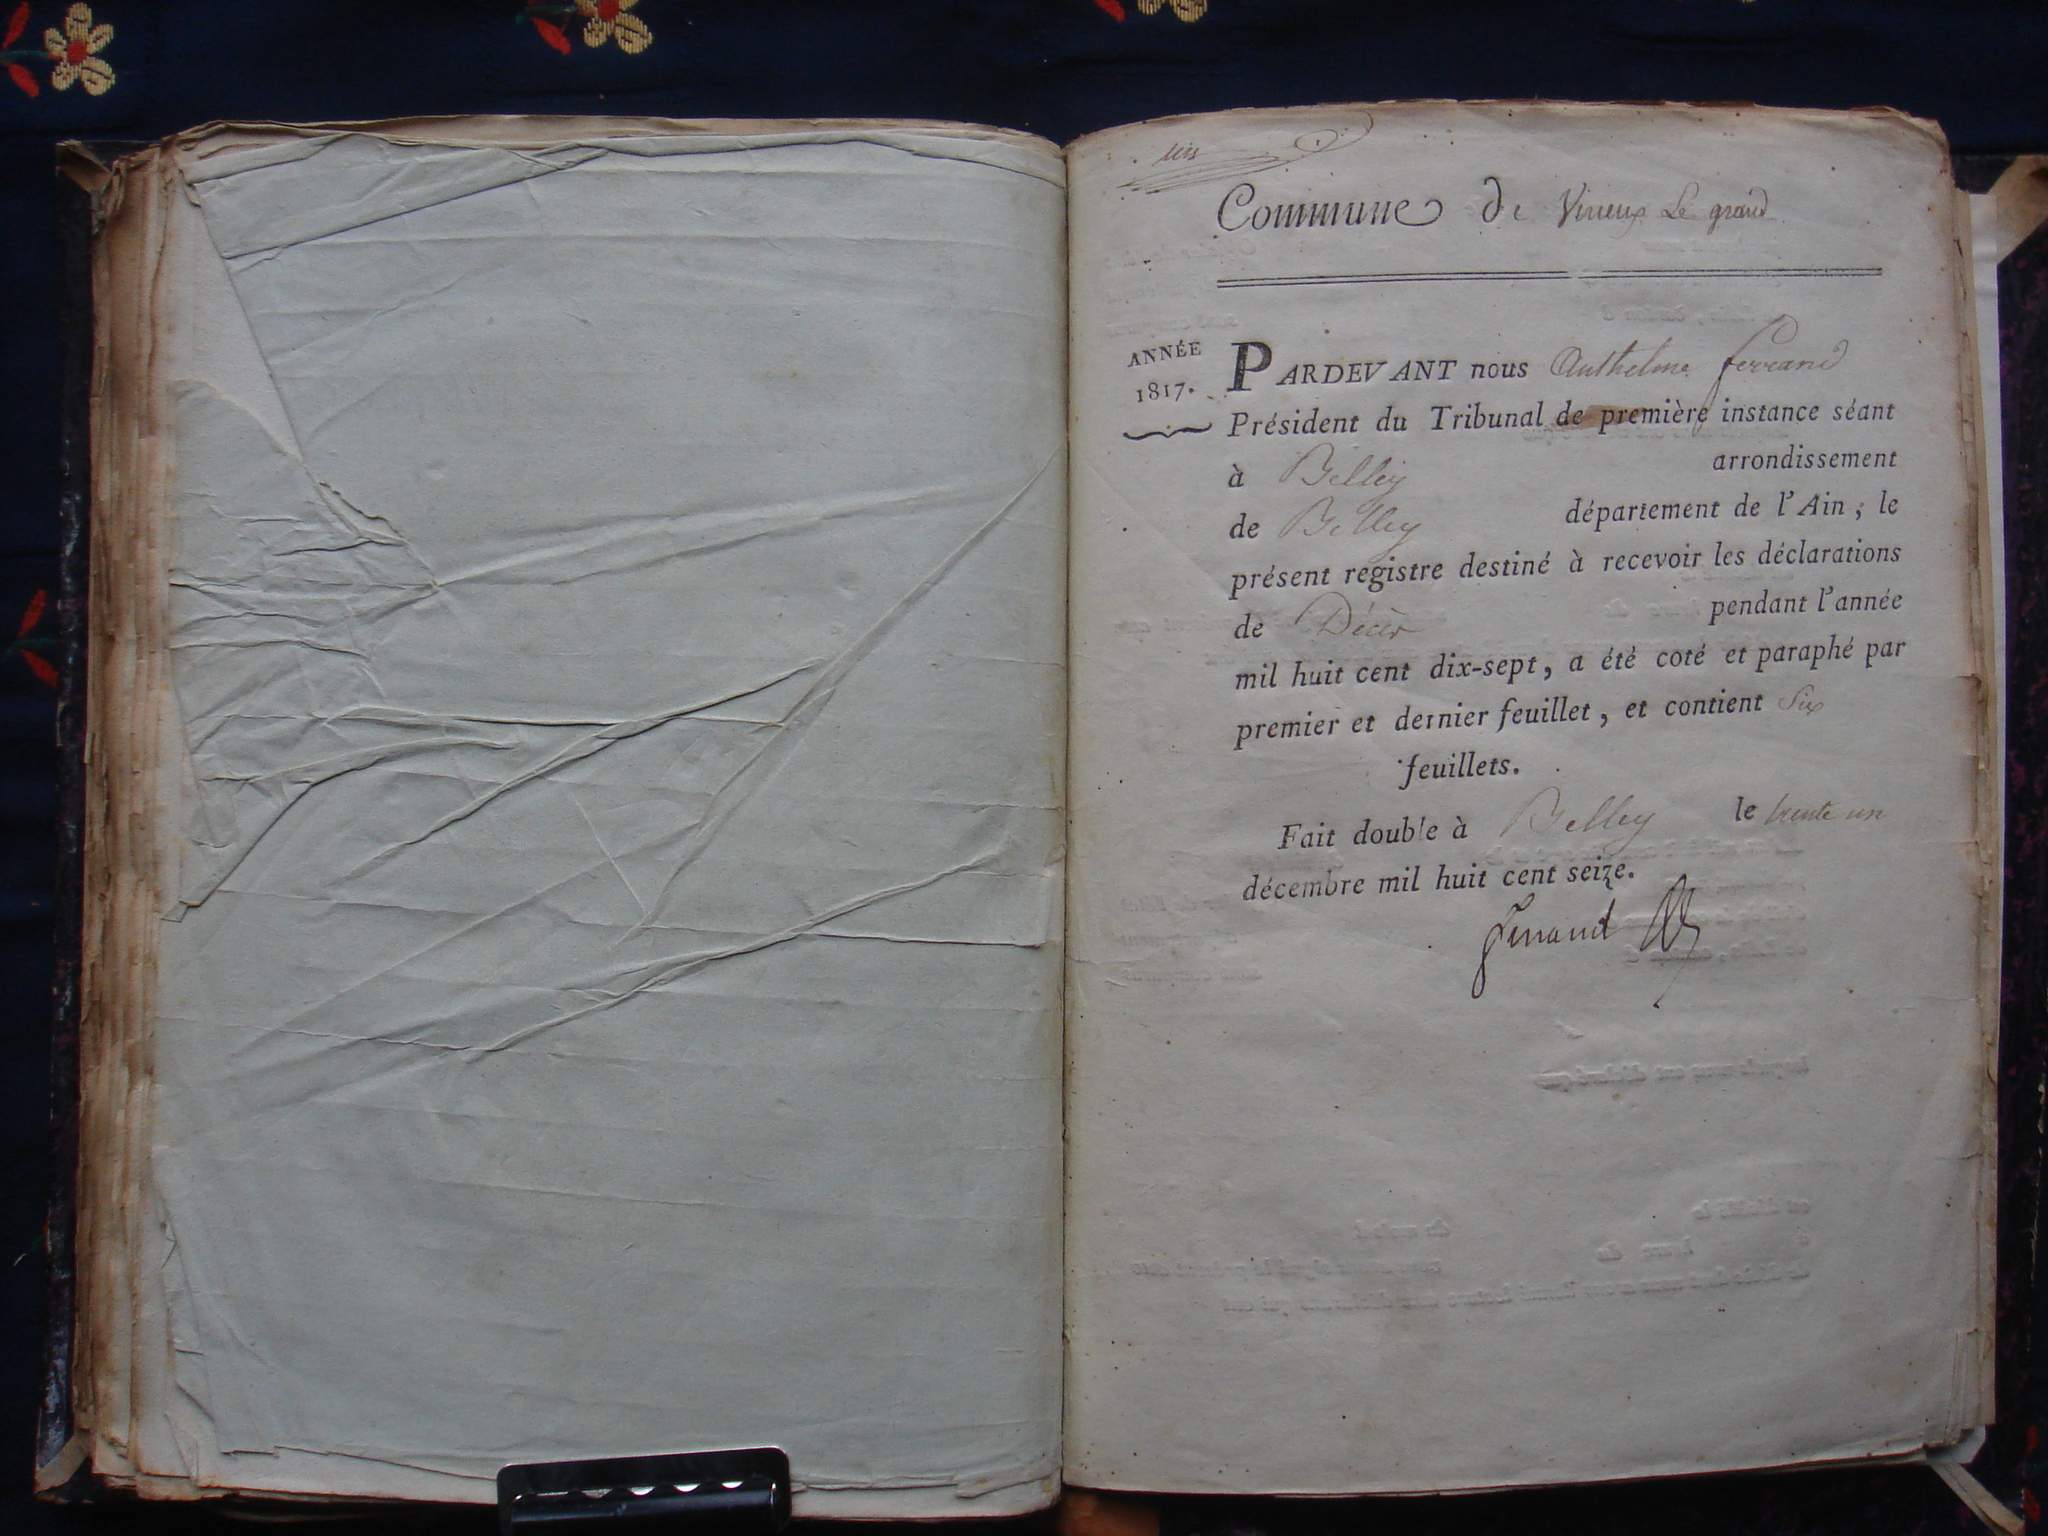 Commune de Virieux Le grand
ANNÉE
1817.
PARDEVANT nous Anthelme ferrand
Président du Tribunal de première instance séant
à Belley arrondissement
de Belley département de l'Ain ; le
présent registre destiné à recevoir les déclarations
de Décès pendant l'année
mil huit cent dix-sept, a été coté et paraphé par
premier et dernier feuillet, et contient Six
feuillets.
Fait double à Belley le trente un
décembre mil huit cent seize.
ferrand